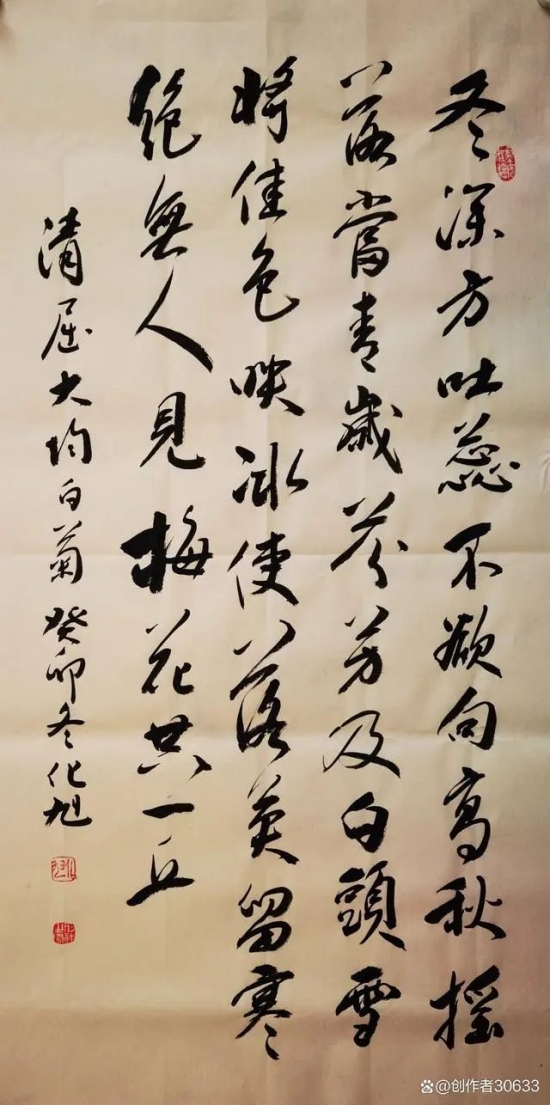 冬深方吐蕊不欲向高秋摇
落當青歲芬芳及白頭雪
将佳色映冰使落英留寒
絶無人見梅花共一丘
清屈大均白菊癸卯冬化旭
@创作者30633